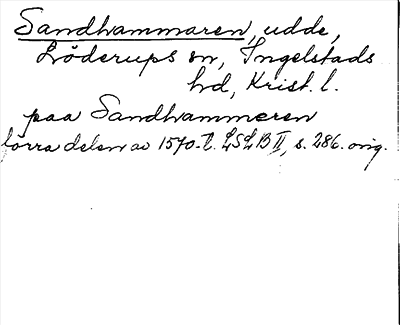 Sandhammaren, udde,
Löderups sn, Ingelstads
hd, Krist. l.
paa Sandhammeren
förra delen av 1570-t. LSLB II, s. 286. orig.